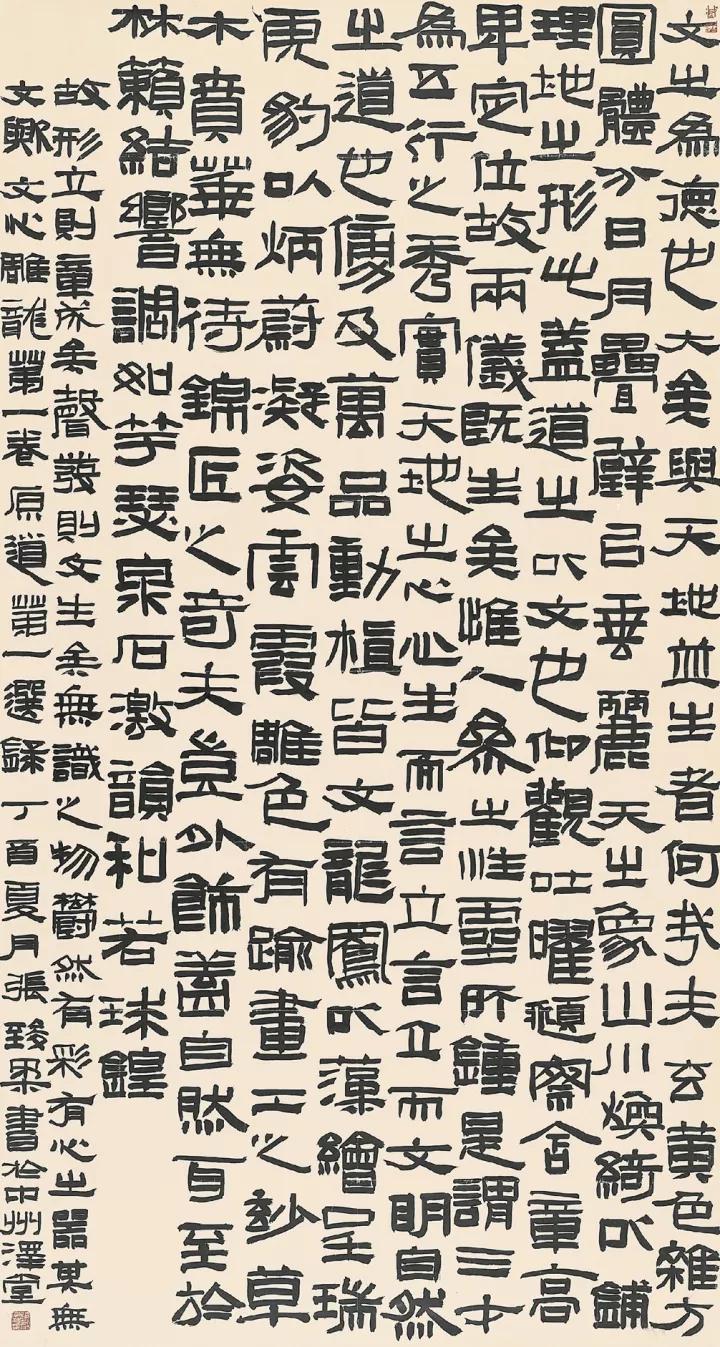 文之為德也大矣與天地並生者何哉夫玄黃色雜方
圓體分日月疊璧以垂麗天之象山川煥綺以鋪
理地之形此蓋道之以文也仰觀吐曜頫察含章高
卑定位故兩儀既生矣惟人參之性靈所鍾是謂三才
為五行之秀實天地之心心生而言立言立而文明自然
之道也傍及萬品動植皆文龍鳳以藻繪呈瑞
虎豹以炳蔚凝姿雲霞雕色有踰畫工之妙草
木賁華無待錦匠之奇夫豈外飾蓋自然耳至於
林籟結響調如竽瑟泉石激韻和若球鍠
故形立則章成矣聲發則文生矣無識之物鬱然有彩有心之器其無
文歟文心雕龍第一卷原道第一選錄丁酉夏月張書於中州澤堂